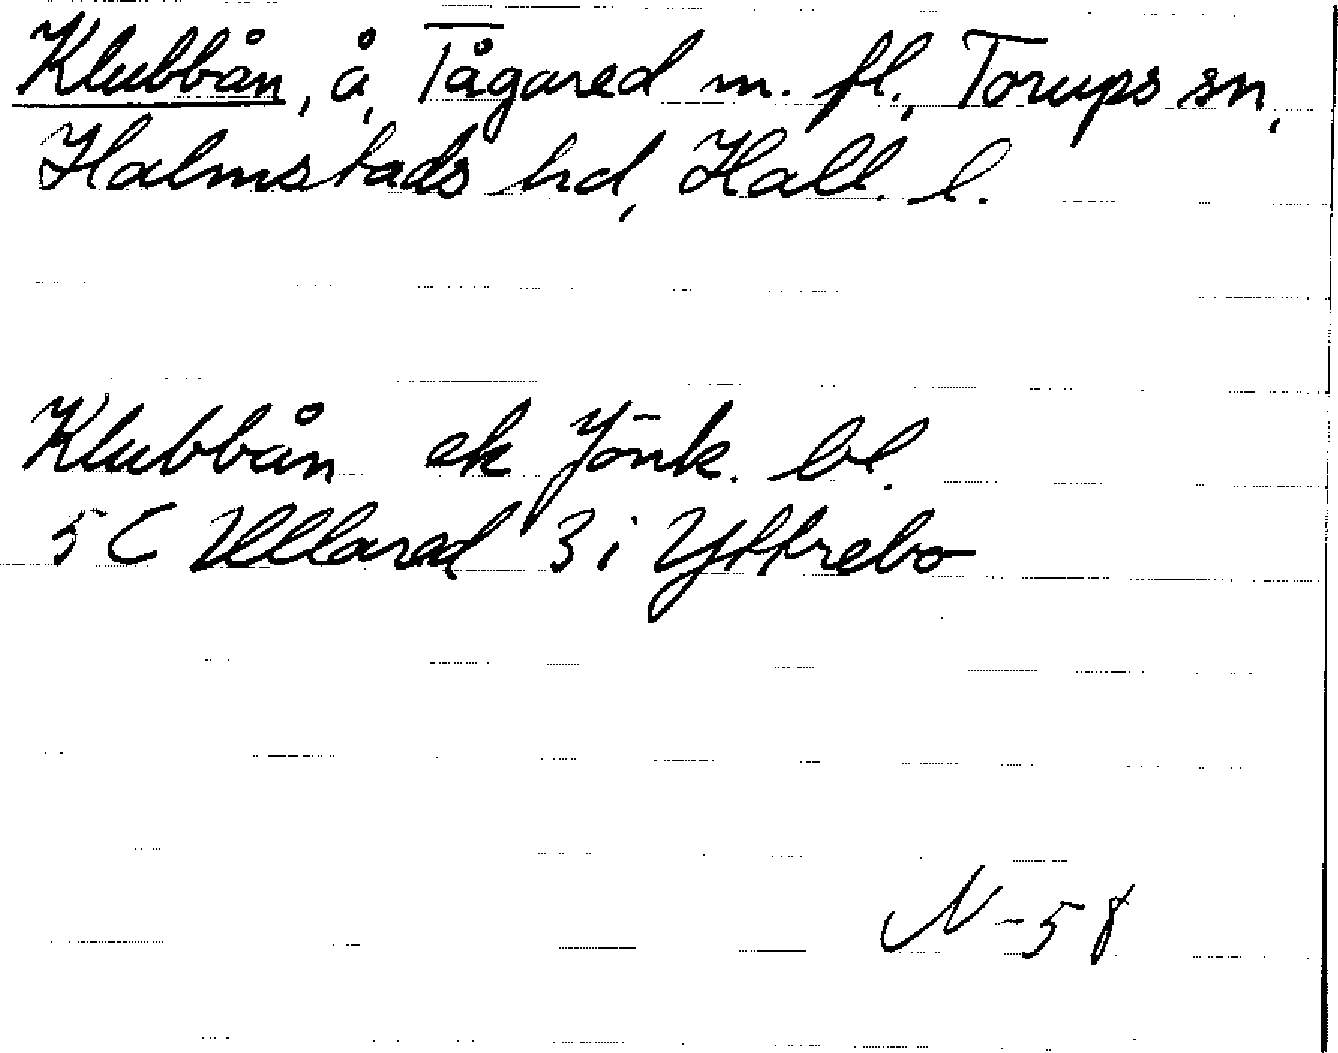 Klubbån, å, Tågared m. fl., Torups sn,
Halmstads hd, Hall. l.
Klubbån ek Jönk. bl.
5 C Ullared 3 i Yttrebo
N-58